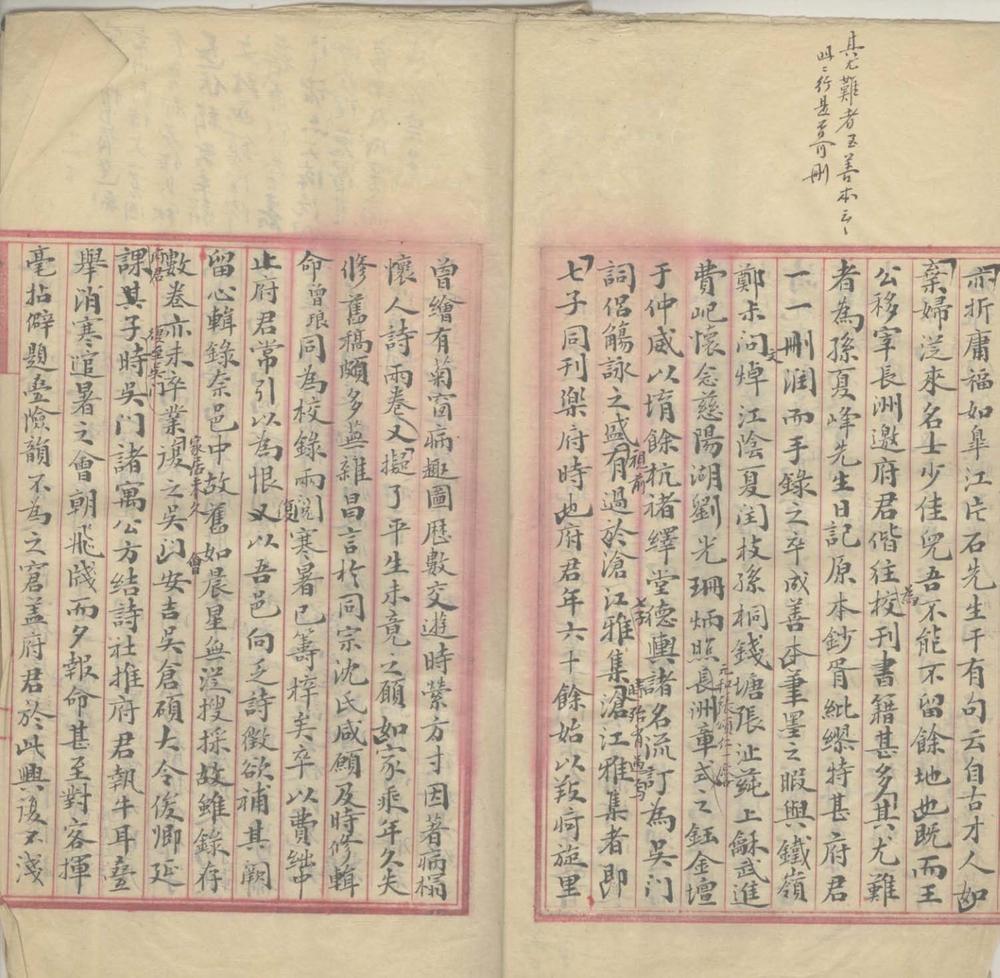 其尤難者至善本云云
此二行是否可刪
亦折庸福如皋江片石先生干有句云自古才人如
棄婦從來名士少佳兒吾不能不留餘地也既而王
公移宰長洲邀府君偕往校刊書籍甚多其尤難
為
者為孫夏峰先生日記原本鈔胥紕繆特甚府君
一一刪潤而手錄之卒成善本筆墨之暇與鐵嶺
鄭未問焯江陰夏閏枝孫桐錢塘張沚蒓上龢武進
文
費屺懷念慈陽湖劉光珊炳照長洲章式之鈺金壇
于仲威以堉餘杭褚繹堂德輿諸名流訂為吳門
詞侶觴詠之盛有過於滄江雅集滄江雅集者即
祖前
七子同刊樂府時也府君年六十餘始以羖㟢旋里
曾繪有菊窗病趣圖歷數交遊時縈方寸因著病榻
懷人詩兩卷又擬了平生未竟之願如家乘年久失
修舊稿頗多蕪雜昌言於同宗沈氏咸願及時修輯
命曾琅同為校錄兩閱寒暑已籌梓矣卒以費絀中
止府君常引以為恨又以吾邑向乏詩徵欲補其闕
復
留心輯錄奈邑中故舊如晨星無從搜採故雖錄存
數卷亦未竣業謏之吳門安吉吳倉碩大令俊卿延
家居未久
會
府君
課其子時吳門諸寓公方結詩社推府君執牛耳疊
舉消寒逭暑之會朝飛牋而夕報命甚至對客揮
毫拈僻題疊險韻不為之窘蓋府君於此興復不淺